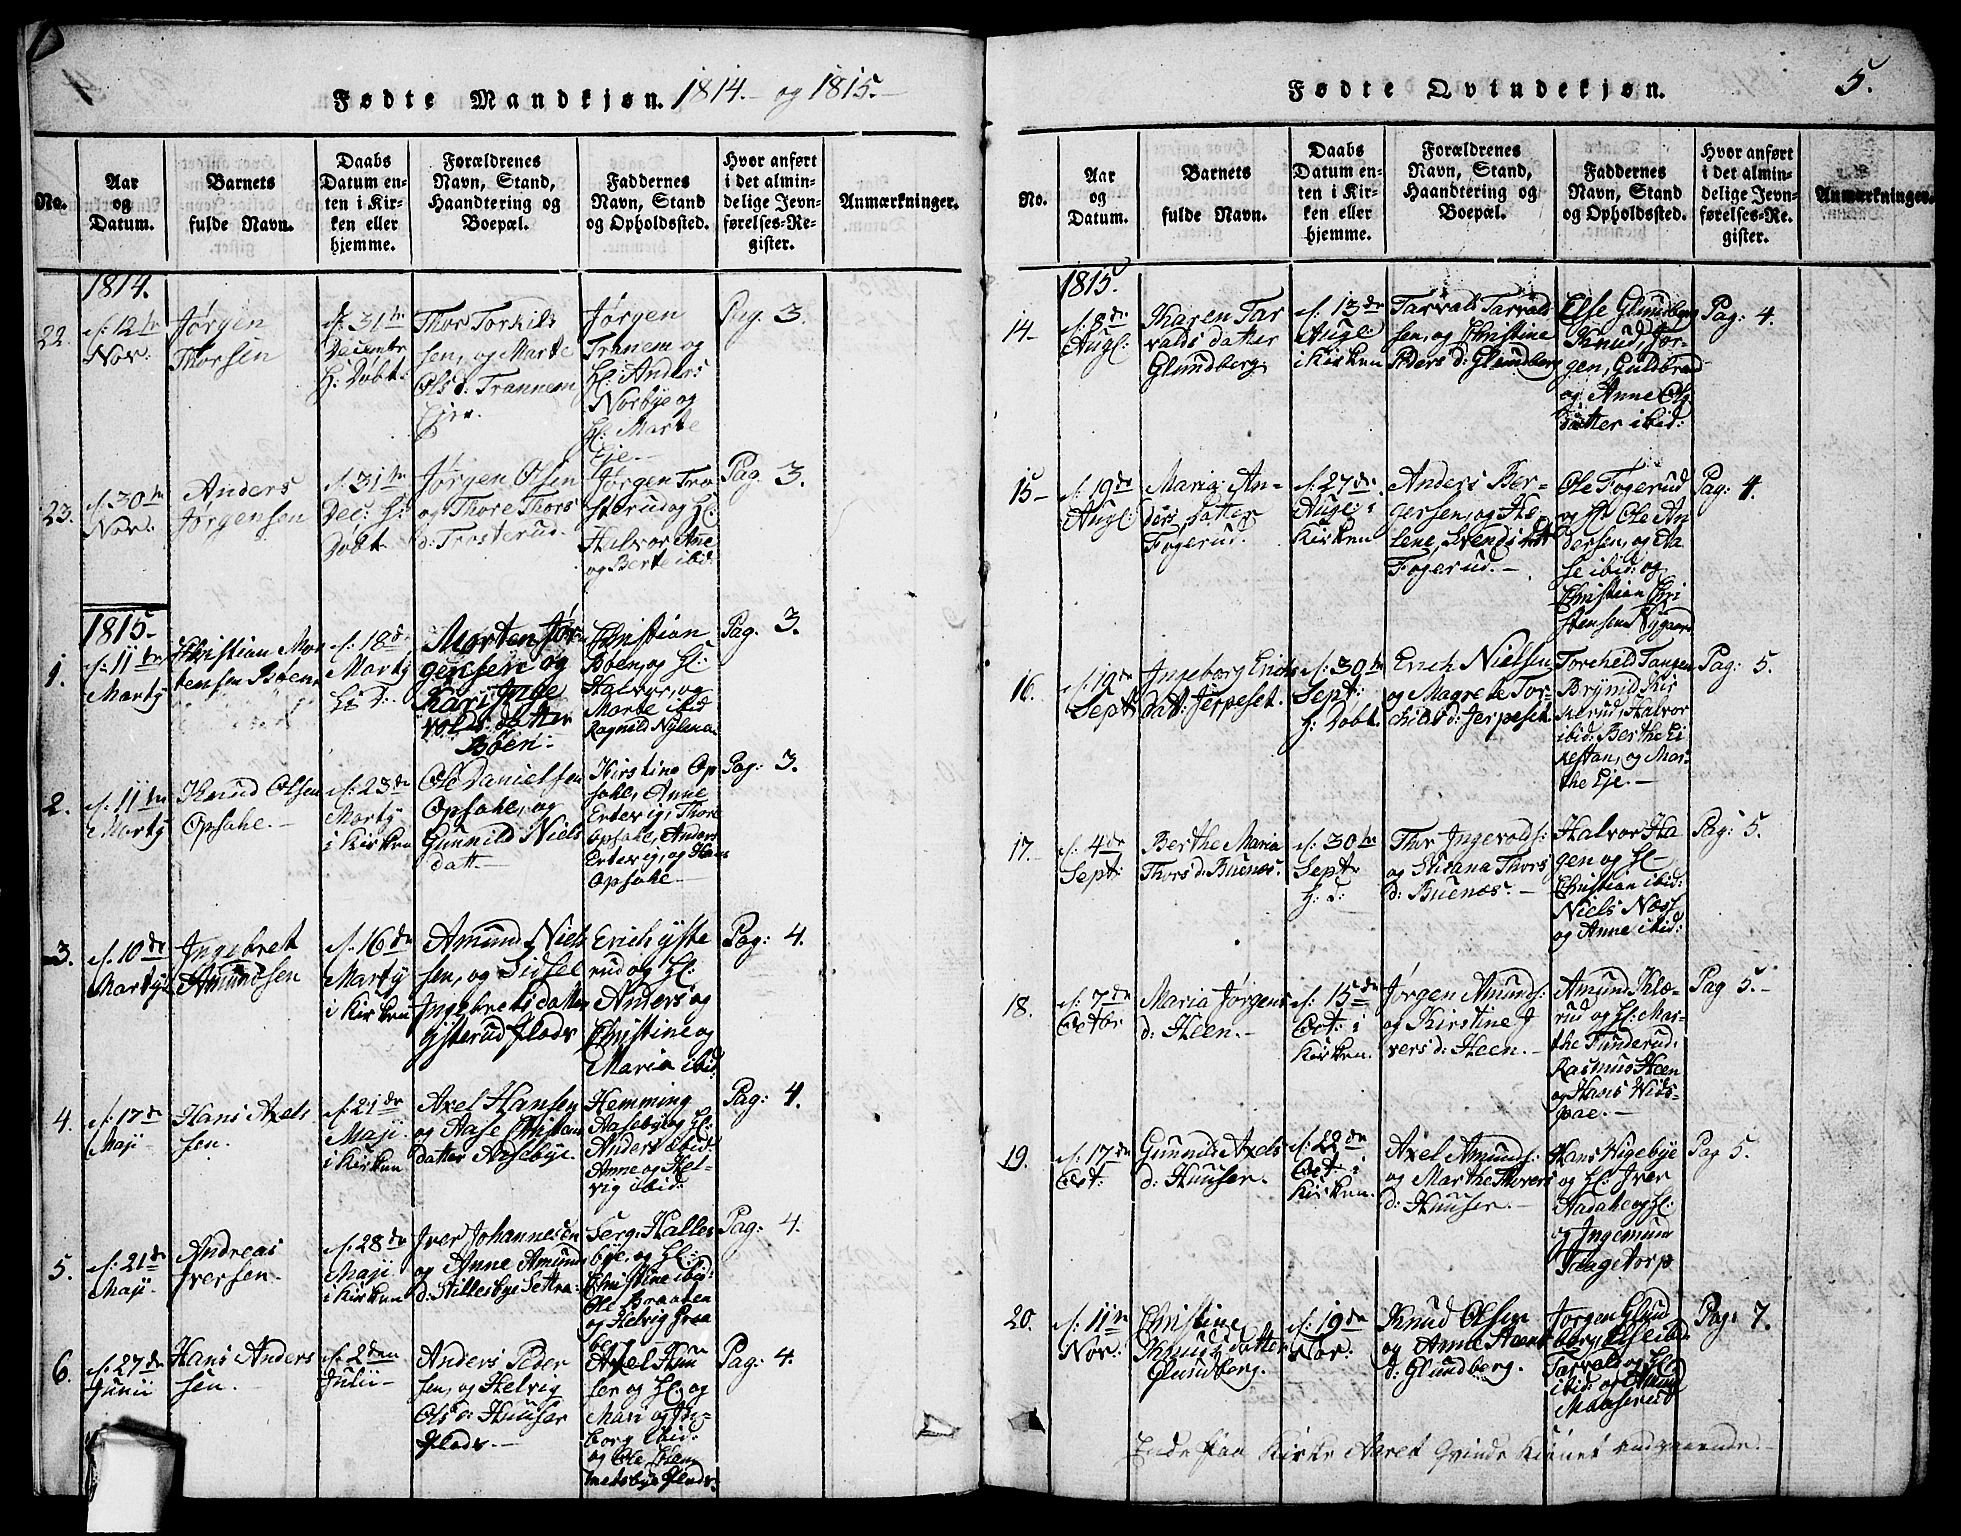 Fødte Mandkjøn. 1814. og 1815.
No.
Aar
og
Datum.
Barnets
fulde Navn.
Daabs
Datum en-
ten i Kir-
ken eller
hjemme.
Forældrenes
Navn, Stand,
Haandtering og
Boepæl.
Faddernes
Navn, Stand
og Opholdssted.
Hvor anført
i det almin-
delige Jevn-
førelses-Re-
gister.
Anmærkninger.
1814.
22.
d: 12te
Nov:
Jørgen
Thorsen
d: 31te
Decembr
H: Døbt.
Thor Torkild
sen, og Marte
Ols d: Trannem
Eje.
Jørgen
Tranem og
H: Anders
Norbye og
H: Marte
Eje.
Pag. 3.
23.
d: 30te
Nov:
Anders
Jørgensen
d: 31te
Dec: H:
Døbt.
Jørgen Olsen
og Thore Thors
d: Trosterud.
Jørgen Tro
sterud og H:
Halvor Ane
og Berte ibid.
Pag. 3.
1815.
1.
d: 11te
Martj
Christian Mor
tensen Böen
d: 18de
Martj
H: d:
Morten Jør
gensen og
Kari Inge
volds datter
Böen.
Christian
Böen, og H:
Halvor, og
Marte ibid
Ragnild Nylena
Pag. 3.
2.
d: 11te
Martj
Knud Olsen
Opsahe.
d: 23de
Martj
i Kirken
Ole Danielsen
Opsahe, og
Gunnild Niels
datt
Kirstine Op
sahe, Anne
Ertevig, Thore
Opsahe, Anders
Ertevig, og Hans
Opsahe
Pag: 3.
3.
d: 10de
Martji
Ingebret
Amundsen
d: 16de
Martj
i Kirken
Amund Niel
sen, og Sidsel
Ingebrets datter
Ysterud Plads
Erich Yste
rud og H:
Anders og
Christine og
Maria ibid:
Pag: 4.
4.
d: 17de
Maji
Hans Axel
sen.
d: 21de
Maji
i Kirken
Axel Hansen
og Aase Christens
datter Aasebye.
Hemming
Aasebye og H:
Anders ibid:
Anne og Hel-
vig ibid:
Pag: 4.
5.
d: 21de
Maji
Andreas
Iversen.
d: 28de
Maji
i Kirken
Iver Johannesen
og Anne Amunds
d: Hillesbye Settra:
Serg: Halles
bye, og H:
Christine ibid:
Ole Braaten
og Helvig Braa
berg
Pag: 4.
6.
d: 27de
Junii
Hans Anders
sen.
d: 2den
Julii
Anders Peder
sen, og Helvig
Ols d: Huuser
Plads.
Axel Huu
ser og H: og
Mari og In-
borg ibid:
og Ole Hem
metsbye Plads.
Pag: 4.
Fødte Qvindekjøn.
5.
No.
Aar
og
Datum.
Barnets
fulde Navn.
Daabs
Datum en-
ten i Kir-
ken eller
hjemme.
Forældrenes
Navn, Stand,
Haandtering og
Boepæl.
Faddernes
Navn, Stand
og Opholdssted.
Hvor anført
i det almin-
delige Jevn-
førelses-Re-
gister.
Anmærkninger.
1815
14
d: 8de
Aug:
Karen Tar
valds datter
Glundberg
d: 13de
Aug:
i Kirken
Tarvald Tarvald
sen, og Christine
Peders d: Glundberg
Else Glundberg
Knud, Jør-
gen, Guldbrand
og Anne Ols
datter ibid:
Pag: 4.
15
d: 19de
Aug:
Maria An-
ders datter
Fogerud.
d: 27de
Aug: i
Kirken
Anders Ber-
gersen, og He-
lene Svends datt
Fogerud.
Ole Fogerud
og H: Ole An
dersen, og El
se ibid: og
Christian Chri
stensen Nygaard
Pag: 4.
16.
d: 19de
Sept:
Ingeborg Erichs
datt: Jerpeset.
d: 30te
Sept:
H: Døbt.
Erich Nielsen
og Magrete Tor-
childs d: Jerpeset.
Torchild Tangen
Brynild Kir
kerud, Halvor
ibid: Berthe Ei
kestan, og Mar-
the Eje.
Pag: 5.
17.
d: 4de
Sept:
Berthe Maria
Thors d: Buenæs.
d: 30te
Sept
H: d:
Thor Ingevolds:
og Susana Thors
d: Buenæs.
Halvor Ha
gen og H:
Christian ibid:
Niels Næss
og Anne ibid:
Pag: 5.
18.
d: 7de
Octbr
Maria Jørgens
d: Heen.
d: 15de
Oct: i
Kirken.
Jørgen Amunds:
og Kirstine I
vers d: Heen.
Amund Klæ-
rud og H: Mar-
the Funderud,
Rasmus Heen
og Hans Wids-
pae.
Pag 5.
19.
d: 17de
Oct:
Gunnild Axels
d: Huuser.
d: 22de
Oct: i
Kirken.
Axel Amunds:
og Marthe Thores
d: Huuser.
Hans Rigebye
og H: Iver
Aadahe og H:
og Ingemund
Taagetorp
Pag 5.
20.
d: 11te
Nov:
Christine
Knuds datter
Glundberg.
d: 19de
Nov:
Knud Olsen
og Anne Hans
d: Glundberg.
Jørgen Glund
berg, Else ibid
Tarvald og H:
ibid: og
Maaserud
Pag: 7.
Ende paa Kirke Aaret Qvinde Kiønet vedgaaende.